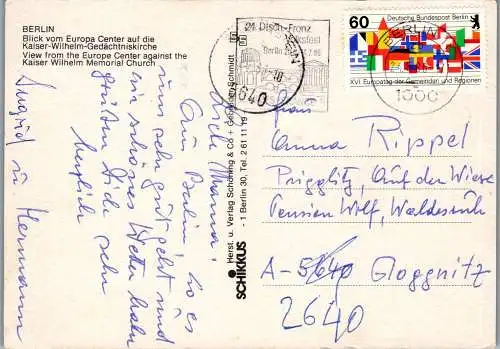 BERLIN
Blick vom Europa Center auf die
Kaiser-Wilhelm-Gedächtniskirche
View from the Europe Center against the
Kaiser Wilhelm Memorial Church
Liebe Mama!
Aus Berlin, wo es
uns sehr gut geht und
ein schönes Wetter haben
grüßen Dich sehr
herzlich
Ingrid u. Hermann
Herst. u. Verlag Schöning & Co + Gebrüder Schmidt
- 1 Berlin 30, Tel. 2 61 11 19
SCHIKKUS
24. Dtsch.-Franz.
Volksfest
Berlin
640
60
Deutsche Bundespost Berlin
XVI. Europatag der Gemeinden und Regionen
BERLIN
1000
Frau
Anna Rippel
Prigglitz, Auf der Wiese
Pension Wolf, Waldesruh
A-5640 Gloggnitz
2640